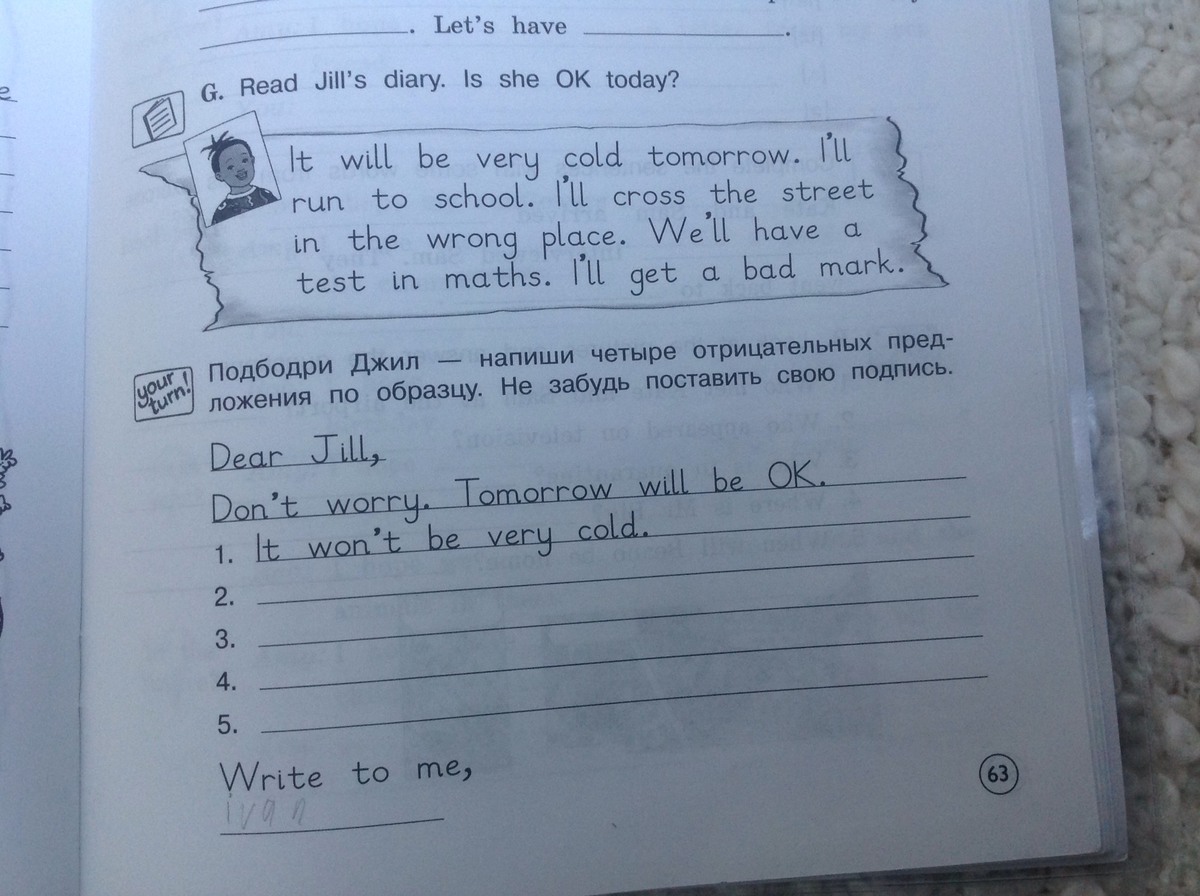 . Let's have .
G. Read Jill's diary. Is she OK today?
It will be very cold tomorrow. I'll
run to school. I'll cross the street
in the wrong place. We'll have a
test in maths. I'll get a bad mark.
your turn!
Подбодри Джил — напиши четыре отрицательных пред-
ложения по образцу. Не забудь поставить свою подпись.
Dear Jill,
Don't worry. Tomorrow will be OK.
1. It won't be very cold.
2.
3.
4.
5.
Write to me,
ivan
63